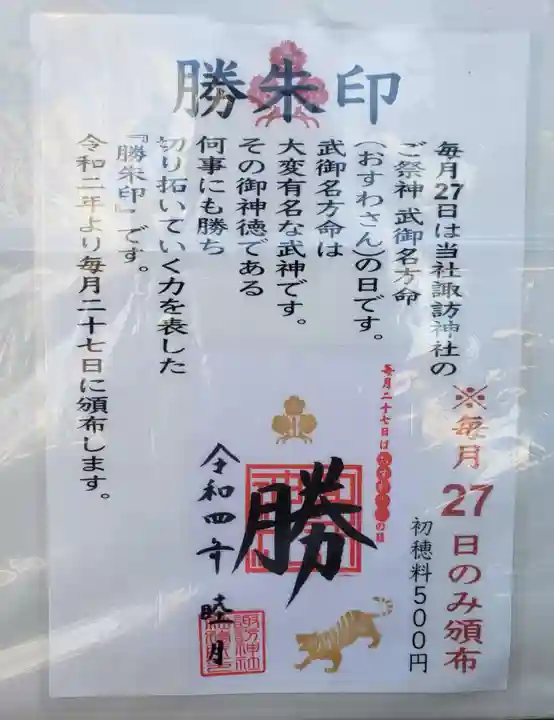 勝朱印
毎月27日は当社諏訪神社の
ご祭神 武御名方命
(おすわさん)の日です。
武御名方命は
大変有名な武神です。
その御神徳である
何事にも勝ち
切り拓いていく力を表した
『勝朱印』です。
令和二年より毎月二十七日に頒布します。
※毎月27日のみ頒布
初穂料500円
毎月二十七日は
勝
令和四年 睦月
諏訪神社